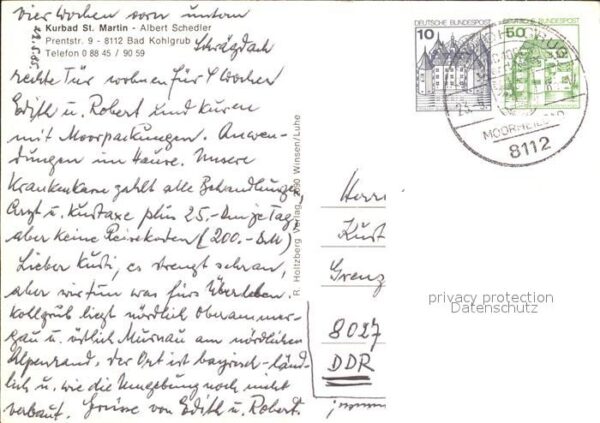 vier Wochen vorn unten
22.5.85.
Kurbad St. Martin - Albert Schedler
Prentstr. 9 - 8112 Bad Kohlgrub
Schrägdach
Telefon 0 88 45 / 90 59
rechte Tür wohnen für 4 Wochen
Edith u. Robert und kuren
mit Moorpackungen. Anwen-
dungen im Hause. Unsere
Krankenkasse zahlt alle Behandlungen,
Arzt u. Kurtaxe plus 25,- Dm je Tag,
aber keine Reisekosten (200.- DM)
Lieber Kurti, es strengt sehr an,
aber wir tun was fürs Überleben.
Kohlgrub liegt nördlich Oberammer-
gau u. östlich Murnau am nördlichen
Alpenrand, der Ort ist bayrisch-länd-
lich u. wie die Umgebung noch nicht
verbaut. Grüsse von Edith u. Robert.
R. Holtzberg Verlag, 2090 Winsen/Luhe
DEUTSCHE BUNDESPOST
10
DEUTSCHE BUNDESPOST
50
MOORHEILBAD
8112
Herrn
Kurt
Grenz
8027
DDR
privacy protection
Datenschutz